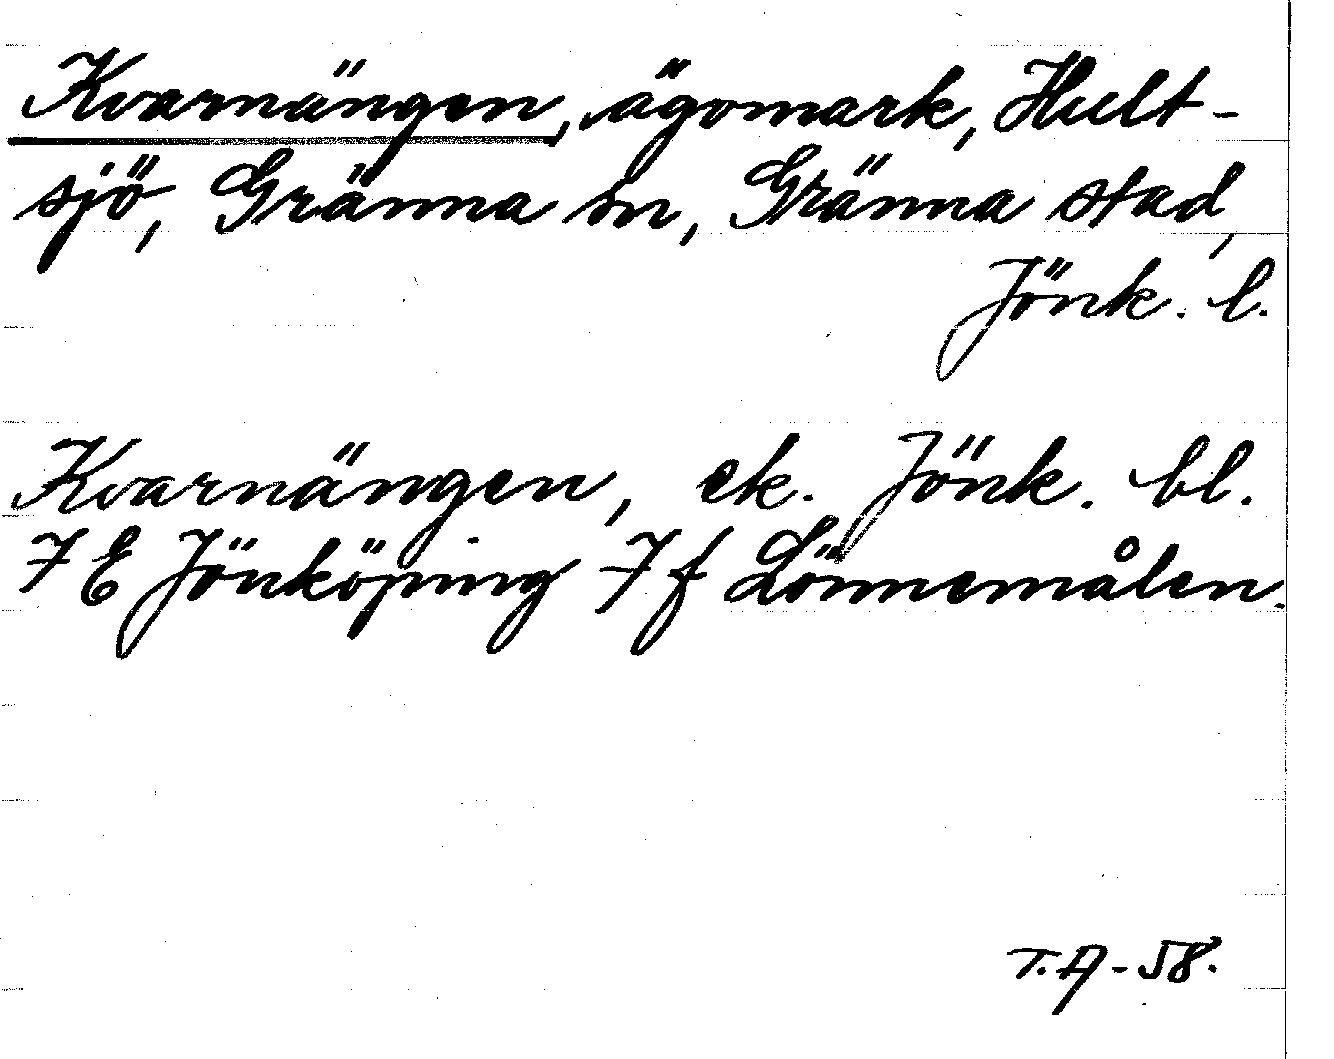 Kvarnängen, ägomark, Hult-
sjö, Gränna sn, Gränna stad,
Jönk. l.
Kvarnängen, ek. Jönk. bl.
7 E Jönköping 7 f Lönnemålen.
T.A-58.